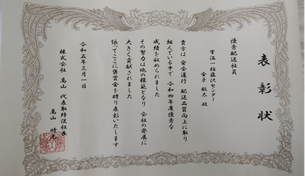 表彰状
優秀配送社員
貴方は安全運行、配送品質向上に取り
組んでいる中で 令和四年度優秀な
成績を収められました
その努力は他の模範となり 会社の発展に
大きく貢献されました
依ってここに褒賞金を贈り表彰いたします
令和五年三月一日
株式会社 高山
代表取締役社長
高山